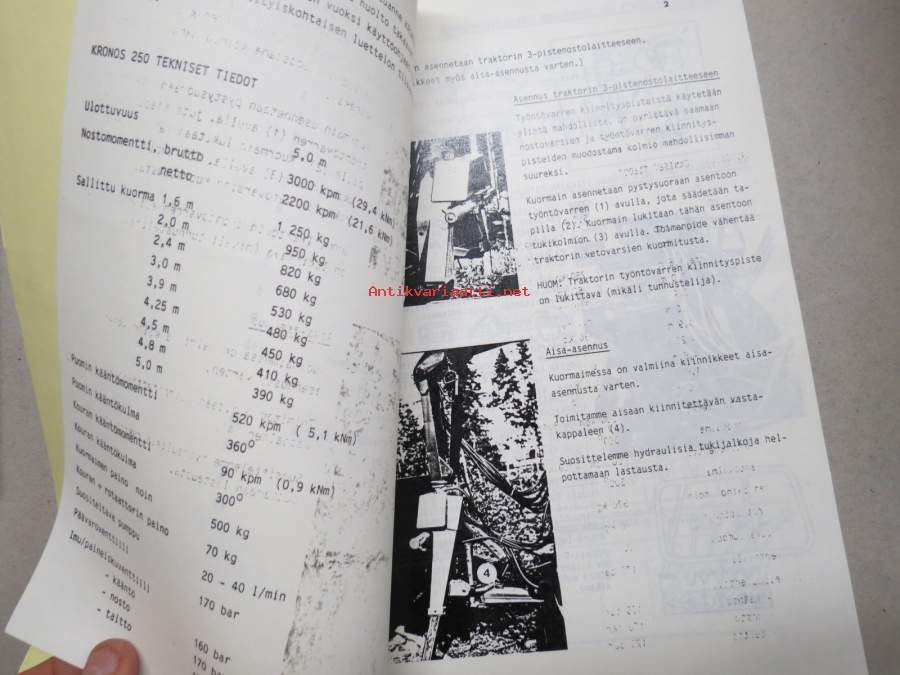 KRONOS 250 TEKNISET TIEDOT
Ulottuvuus 5,0 m
Nostomomentti, brutto 3000 kpm (29,4 kNm)
netto 2200 kpm (21,6 kNm)
Sallittu kuorma 1,6 m 1 250 kg
2,0 m 950 kg
2,4 m 820 kg
3,0 m 680 kg
3,9 m 530 kg
4,25 m 480 kg
4,5 m 450 kg
4,8 m 410 kg
5,0 m 390 kg
Puomin kääntömomentti 520 kpm ( 5,1 kNm)
Puomin kääntökulma 360°
Kouran kääntömomentti 90 kpm (0,9 kNm)
Kouran kääntökulma 300°
Kuormaimen paino noin 500 kg
Kouran + rotaattorin paino 70 kg
Suositeltava pumppu 20 - 40 l/min
Päävaroventtiili 170 bar
Imu/paineiskuventtiili
- kääntö 160 bar
- nosto 170 bar
- taitto
2
asennetaan traktorin 3-pistenostolaitteeseen.
myös aisa-asennusta varten.)
Asennus traktorin 3-pistenostolaitteeseen
Työntövarren kiinnityspisteistä käytetään
ylintä mahdollista, on pyrittävä saamaan
nostovarsien ja työntövarren kiinnitys-
pisteiden muodostama kolmio mahdollisimman
suureksi.
Kuormain asennetaan pystysuoraan asentoon
työntövarren (1) avulla, jota säädetään ta-
pilla (2). Kuormain lukitaan tähän asentoon
tukikolmion (3) avulla. Toimenpide vähentää
traktorin vetovarsien kuormitusta.
HUOM: Traktorin työntövarren kiinnityspiste
on lukittava (mikäli tunnustelija).
Antikvariaatti.net
Aisa-asennus
Kuormaimessa on valmiina kiinnikkeet aisa-
asennusta varten.
Toimitamme aisaan kiinnitettävän vasta-
kappaleen (4).
Suosittelemme hydraulisia tukijalkoja hel-
pottamaan lastausta.
4